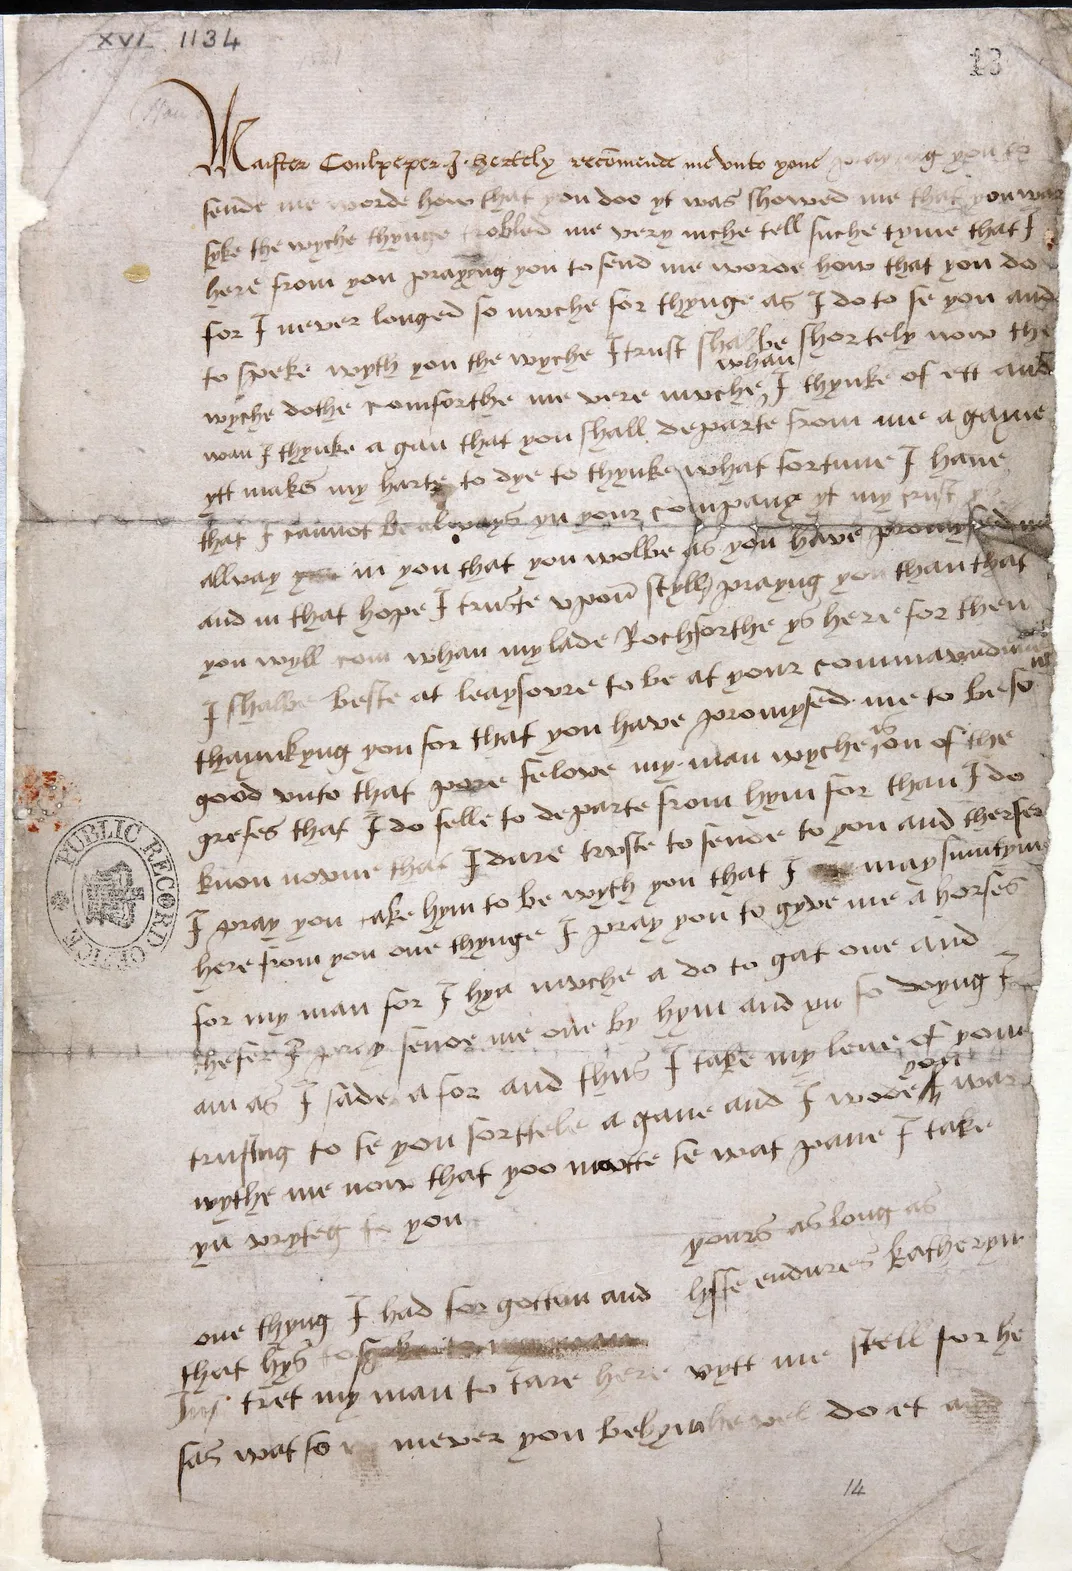 XVI 1134
13
Maister Coulpeper I hertely recomende me unto youe praying you to
sende me worde how that you doo yt was showed me that you was
syke the wyche thynge trobled me very muche tell suche tyme that I
here from you praying you to send me worde how that you do
for I never longed so muche for thynge as I do to se you and
to speke wyth you the wyche I trust shal be shortely now the
wyche dothe comforthe me verie muche whan I thynke of ett and
wan I thynke a gan that you shall departe from me a gayne
ytt makes my harte to dye to thynke what fortune I have
that I cannot be always yn your company yt my trust ys
allway in you that you wolbe as you have promysed me
and in that hope I truste upon styll prayng you than that
you wyll com whan my lade Rochforthe ys here for then
I shalbe beste at leaysoure to be at your commaundmant
thaynkyng you for that you have promysed me to be so
good unto that pore felowe my man wyche as on of the
grefes that I do felle to departe from hym for than I do
know noone that I dare truste to sende to you and therfer
I pray you take hym to be wyth you that I may sumtym
here from you one thynge I pray you to gyve me a horses
for my man for I hyd muche a do to gat one and
thefer I pray sende me one by hym and yn so doying I
am as I sade a for and thus I take my leve of you
trusting to se you sorttele a gane and I wode you war
wythe me now that yoo motte se wat pane I take
yn wryteg to you
yours as long as
lyffe endures Katheryn
one thyng I had forgotten and
that hys to
Ins tret my man to tare here wytt me stell for he
sas wat so mever you behyd he wel do et and
PUBLIC RECORD OFFICE
14